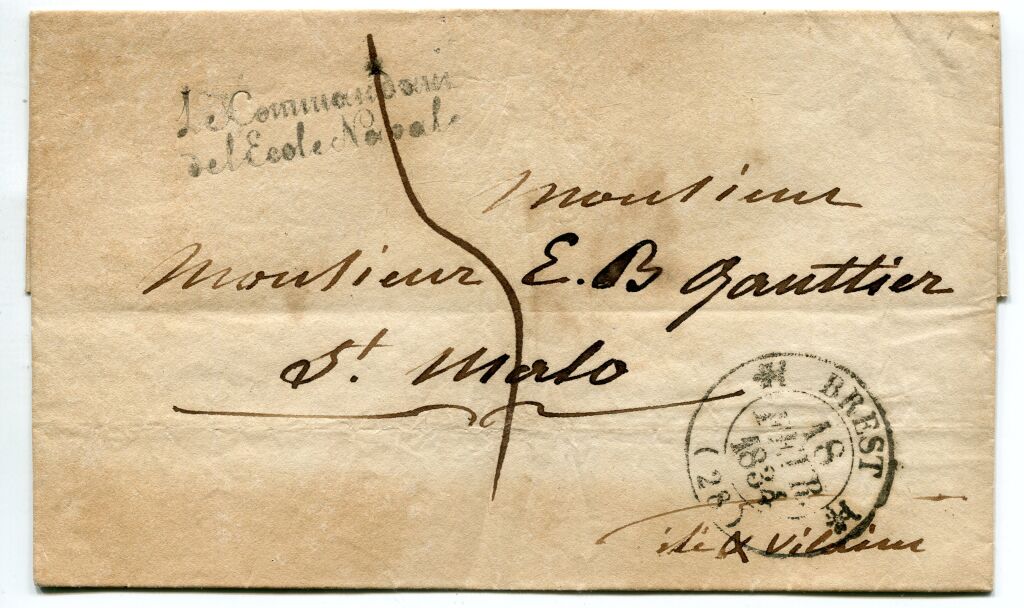 Le Commandant
de l'Ecole Navale
Monsieur
Monsieur E. B Gauttier
St. Malo
BREST
18
1834
(28)
ile & Vilaine